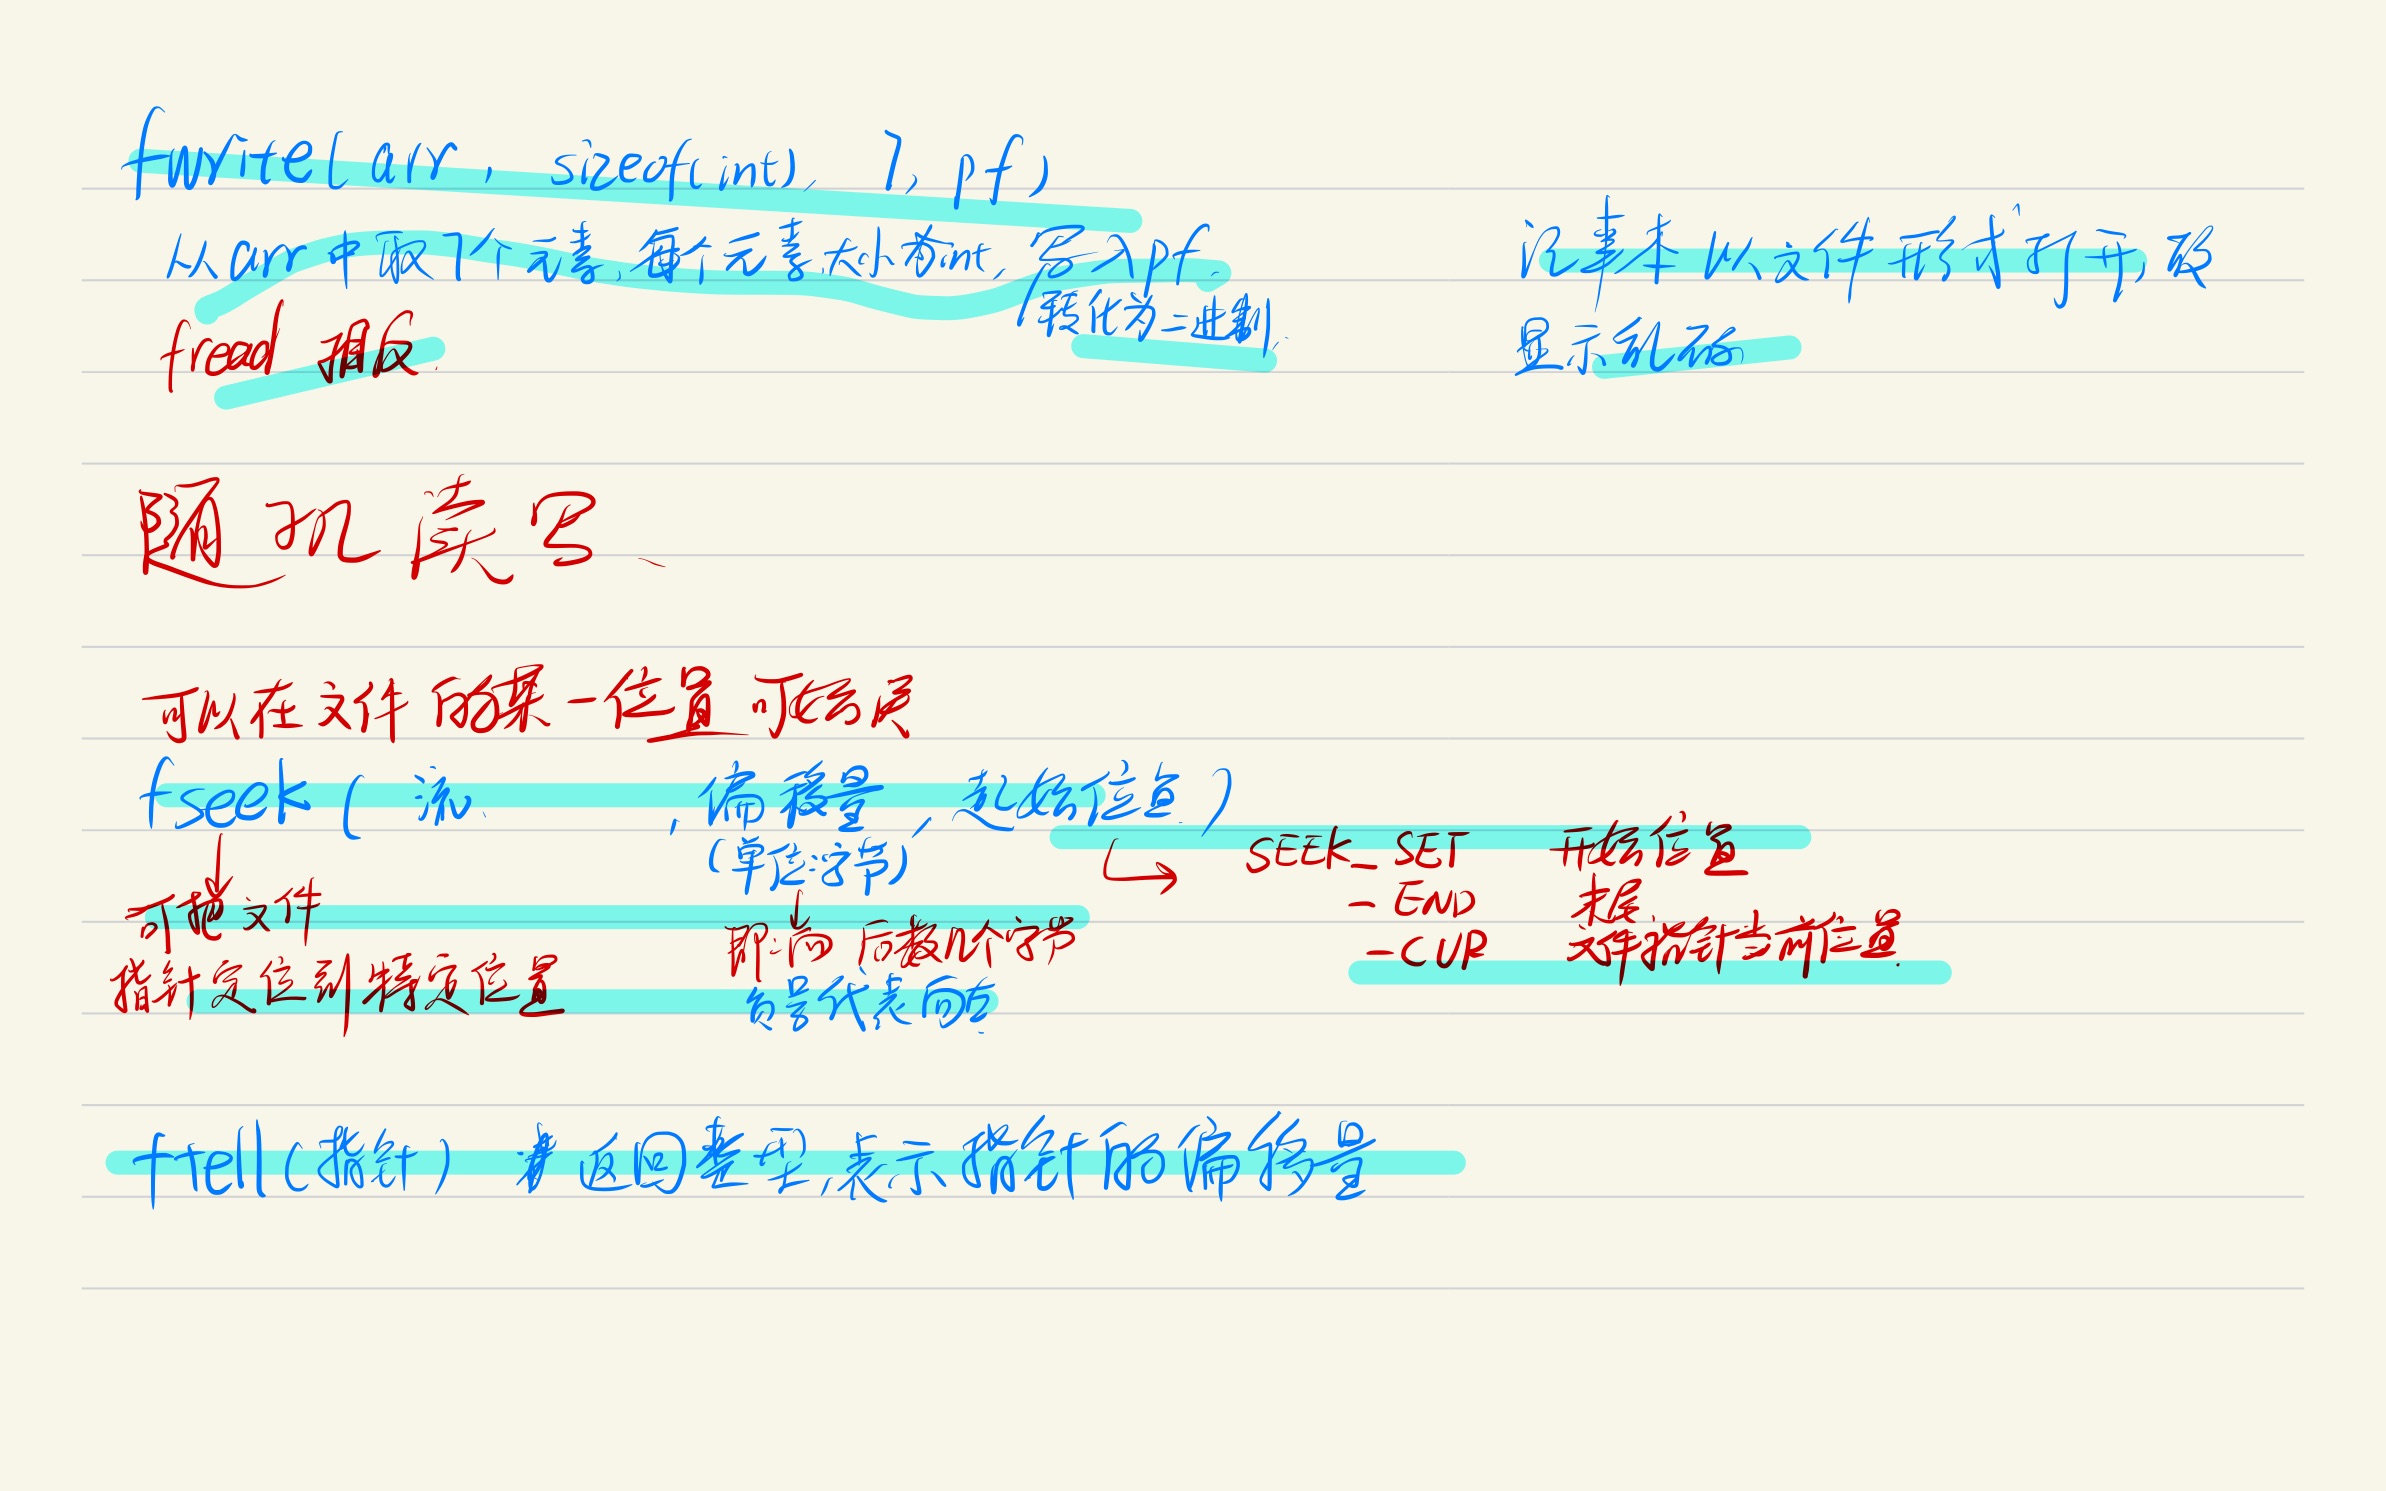 fwrite(arr, sizeof(int), 7, pf)
从arr中取7个元素,每个元素大小为int,写入pf.
转化为二进制.
记事本以文件形式打开,故
显示乱码
fread 相反.
随机读写、
可以在文件的某一位置开始读
fseek(流, 偏移量, 起始位置)
(单位:字节)
SEEK_SET 开始位置
_END 末尾
_CUR 文件指针当前位置.
可把文件
指针定位到特定位置
即:向后数几个字节
负号代表向左
ftell(指针) 返回整型,表示指针的偏移量